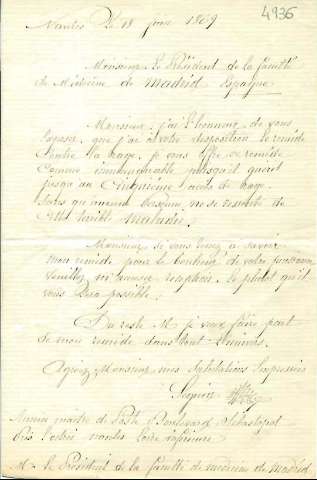 4936
Nantes le 18 juin 1869
Monsieur le Président de la faculté
de Médecine de Madrid Espagne
Monsieur, j'ai l'honneur de vous
exposer que j'ai à votre disposition le remède
contre la rage, je vous offre ce remède
comme immanquable puisqu'il guérit
jusqu'au Cinquième accès de rage.
Sans que aucune personne ne se ressente de
cette terrible maladie.
Monsieur si vous tenez à savoir
mon remède pour le bonheur de votre
veuillez m'accuser réception le plutôt qu'il
vous sera possible.
Du reste M je veux faire part
de mon remède dans tout l'univers.
Agréez Monsieur mes Salutations Empressées
Seguin
Ancien maître de Poste Boulevard Sébastopol
Près l'octroi nantes Loire inférieure
M. le Président de la faculté de médecine de Madrid